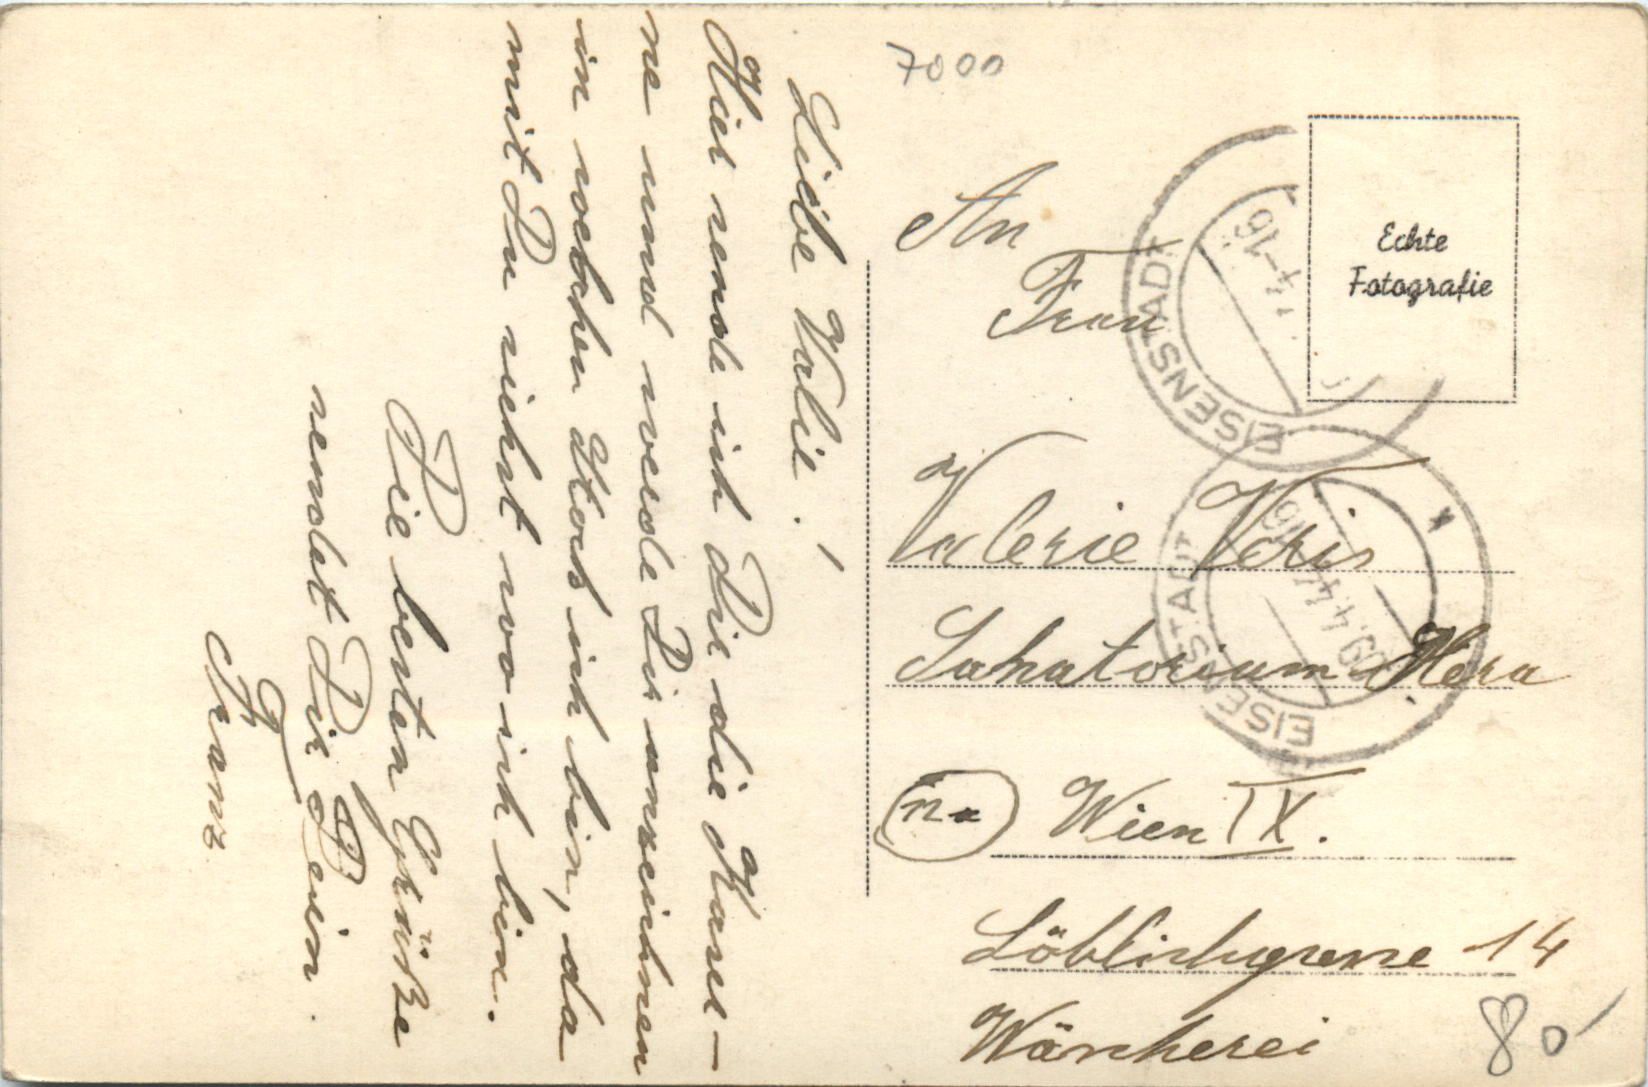 7000
Liebe Valie!
Hier sende ich Dir die Kaser-
ne und werde Dir anzeichnen
in welchen Stock ich bin, da
mit Du siehst wo ich bin.
Die besten Grüße
sendet Dir Dein
Franz
Echte
Fotografie
EISENSTADT
-4-16
EISENSTADT
An
Frau
Valerie
Sanatorium Hera
Wien IX.
Löblichgasse 14
Wäscherei
80